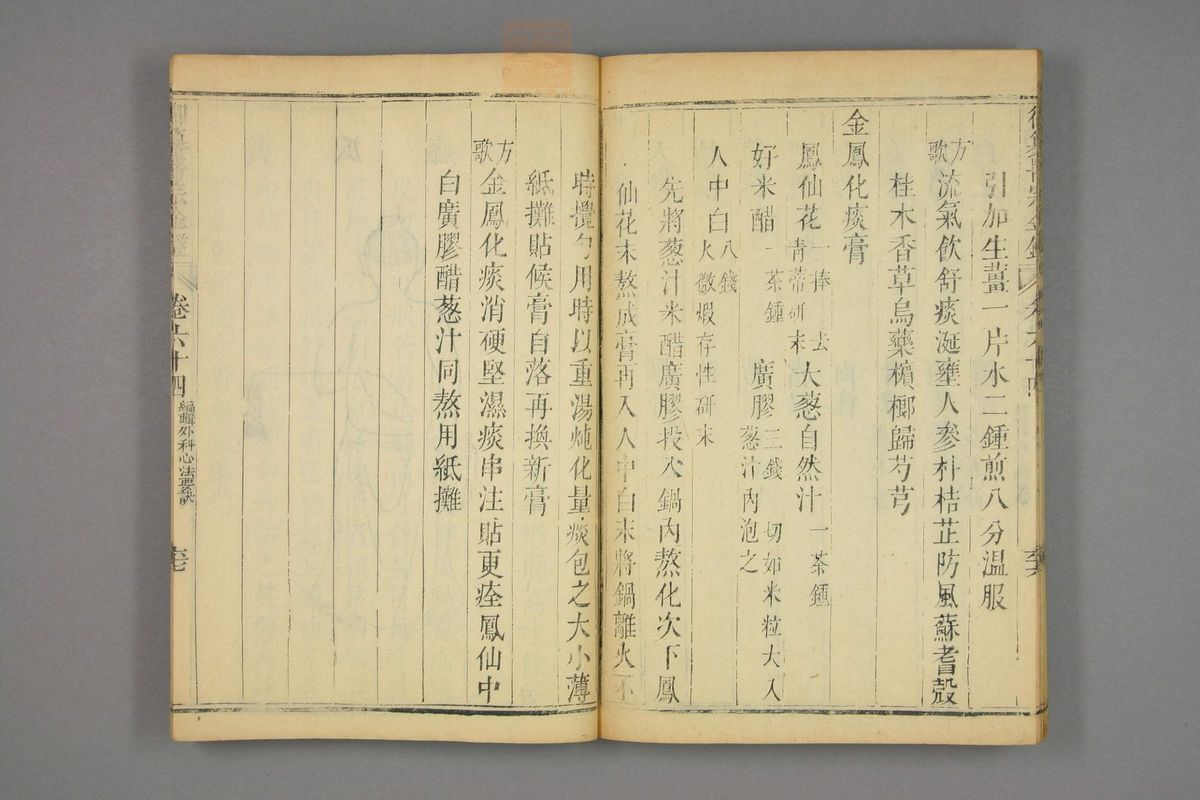 引加生薑一片水二鍾煎八分溫服
方歌 流氣飲舒痰涎壅人參朴桔芷防風蘇耆殼
桂木香草烏藥檳榔歸芍芎
金鳳化痰膏
鳳仙花一捧去青蒂研末 大葱自然汁一茶鍾
好米醋一茶鍾 廣膠三錢切如米粒大入葱汁內泡之
人中白八錢火微煅存性研末
先將葱汁米醋廣膠投入鍋內熬化次下鳳
仙花末熬成膏再入人中白末將鍋離火不
時攪勻用時以重湯燉化量痰包之大小薄
紙攤貼候膏自落再換新膏
方歌 金鳳化痰消硬堅濕痰串注貼更痊鳳仙中
白廣膠醋葱汁同熬用紙攤
卷六十四 編輯外科心法要訣